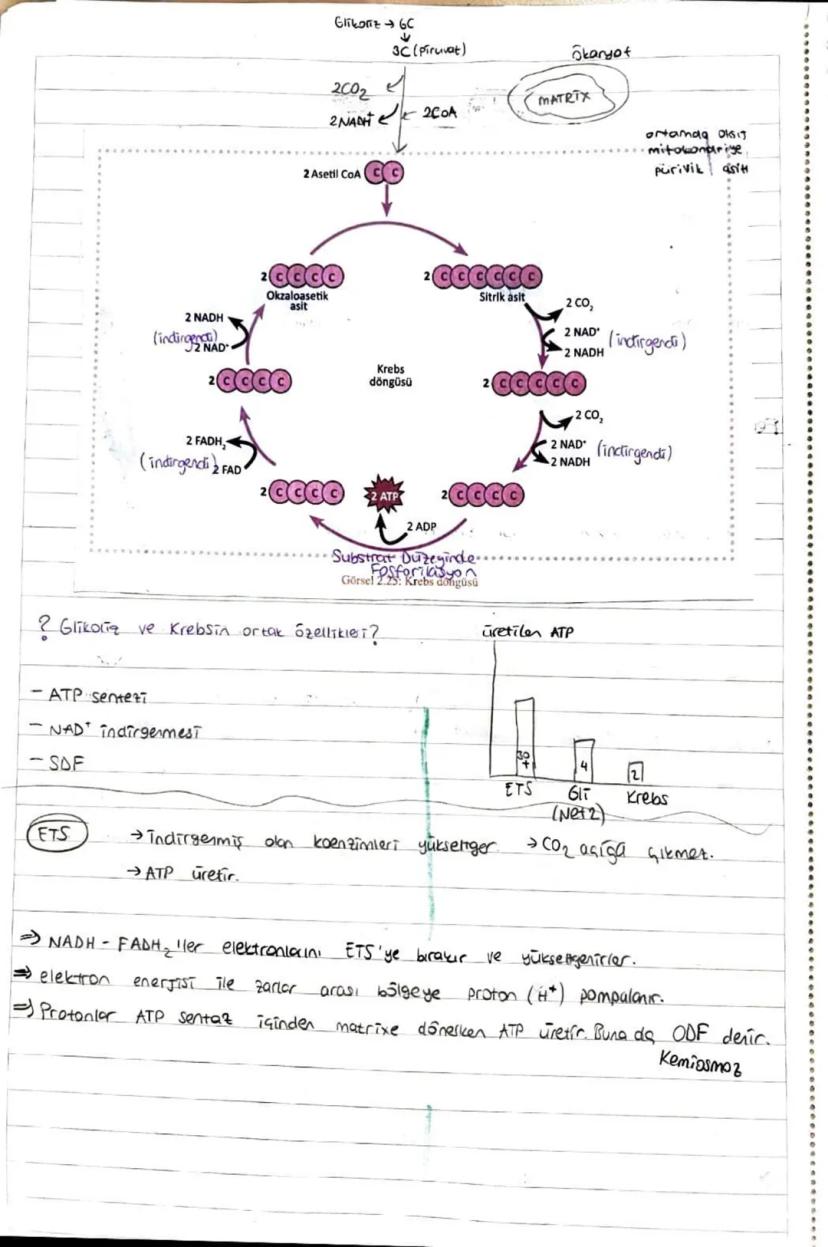 Glikoliz → 6C
3C (Piruvat)
ökaryot
2CO₂
MATRİX
2NADH
2CoA
ortamda
mitokondriye
pürivik asit
2 Asetil CoA C C
2 C C C C
Okzaloasetik
asit
2 C C C C C C
Sitrik asit
2 CO₂
2 NAD⁺
(indirgendi)
2 NADH
2 NADH
(indirgendi)
2 NAD⁺
2 C C C C
Krebs
döngüsü
2 C C C C C
2 CO₂
2 NAD⁺
(indirgendi)
2 NADH
2 FADH₂
(indirgendi)
2 FAD
2 C C C C
2 ATP
2 C C C C
2 ADP
Substrat Düzeyinde
Fosforilasyon
Görsel 2.25: Krebs döngüsü
? Glikoliz ve Krebsin ortak özellikleri?
- ATP sentezi
- NAD⁺ indirgenmesi
- SDF
üretilen ATP
4
2
ETS
Gli
(Net2)
Krebs
ETS
→ indirgenmiş olan koenzimleri yükseltger. → CO₂ açığa çıkmaz.
→ ATP üretir.
⇒ NADH - FADH₂'ler elektronlarını ETS'ye bırakır ve yükseltgenirler.
⇒ elektron enerjisi ile zarlar arası bölgeye proton (H⁺) pompalanır.
⇒ Protonlar ATP sentaz içinden matrixe dönerken ATP üretir. Buna da ODF denir.
Kemiosmoz